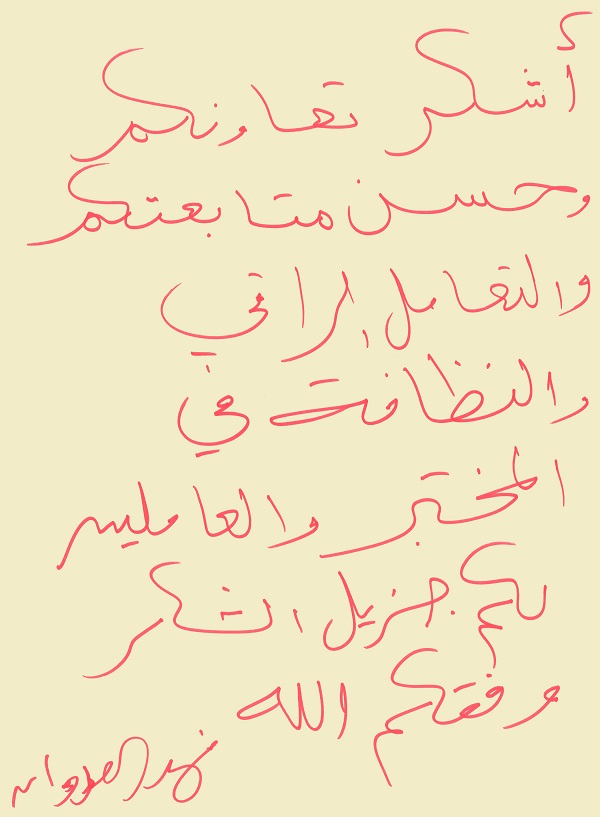 أشكر تعاونكم
وحسن متابعتكم
والتعامل الراقي
والنظافة في
المختبر والعاملين
لكم جزيل الشكر
وفقكم الله
فهد العدواني